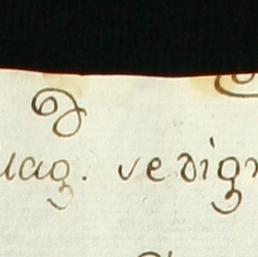 uag. se dign